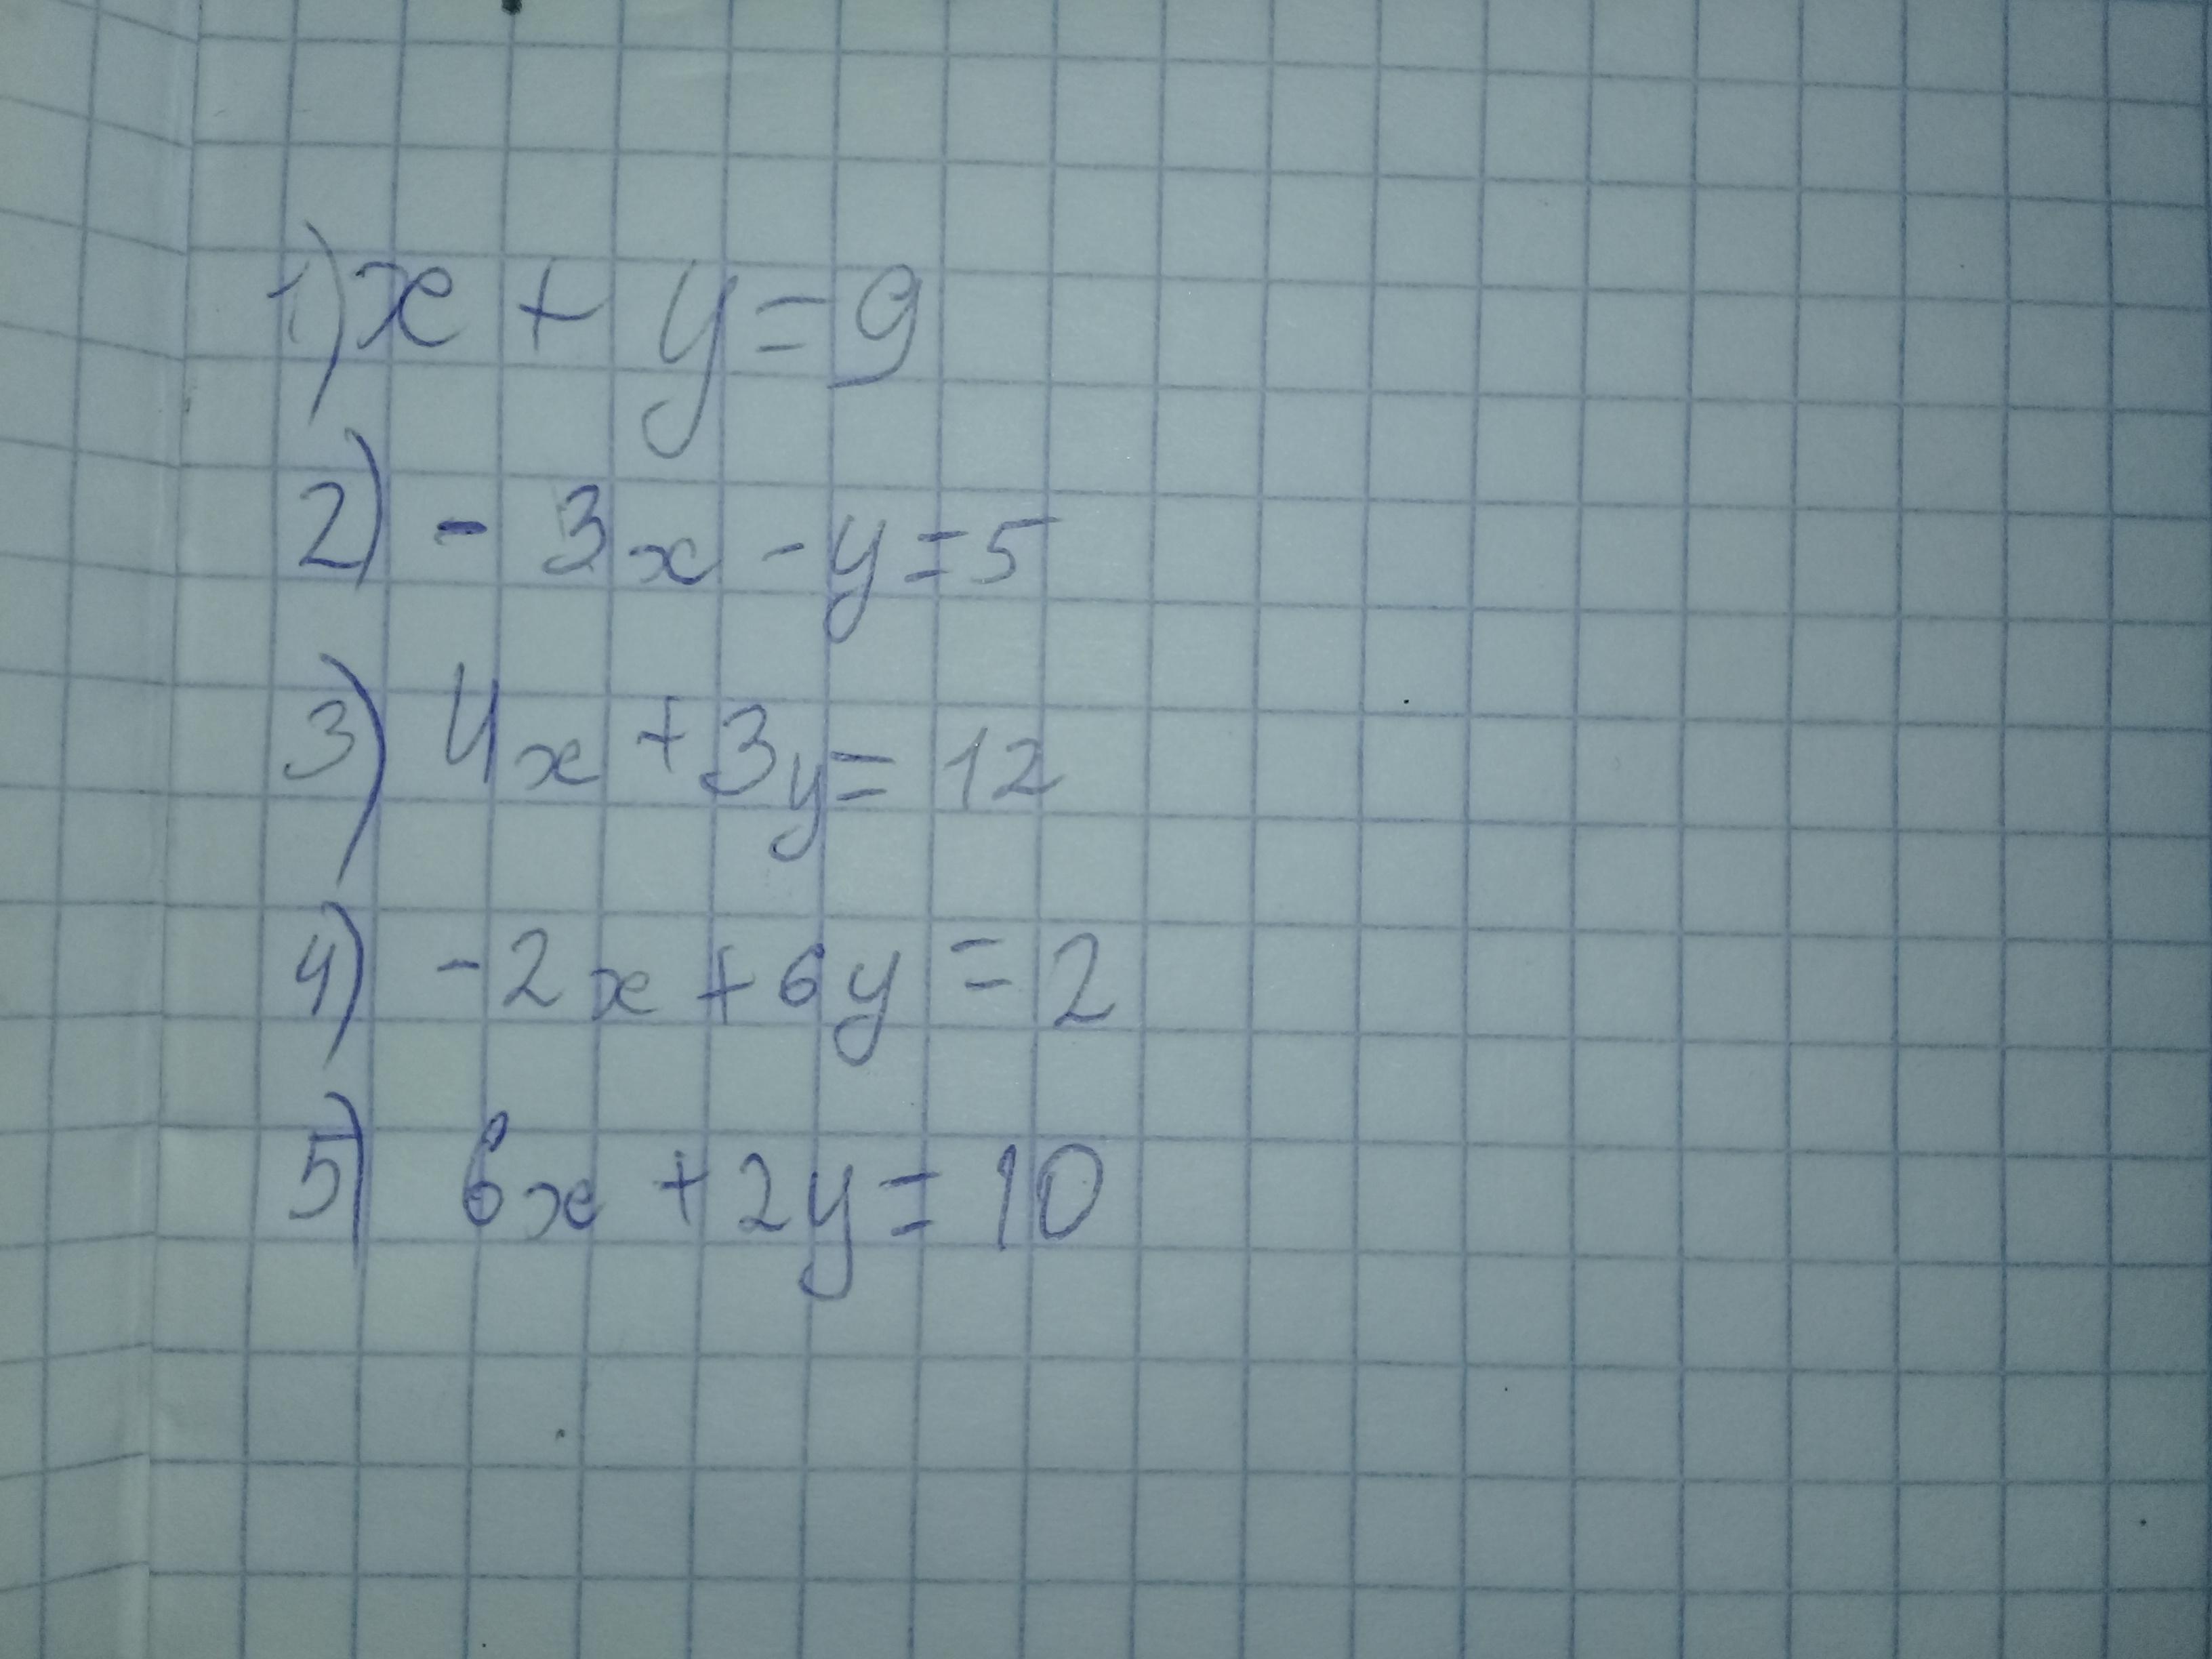 1) x + y = 9
2) - 3x - y = 5
3) 4x + 3y = 12
4) - 2x + 6y = 2
5) 6x + 2y = 10